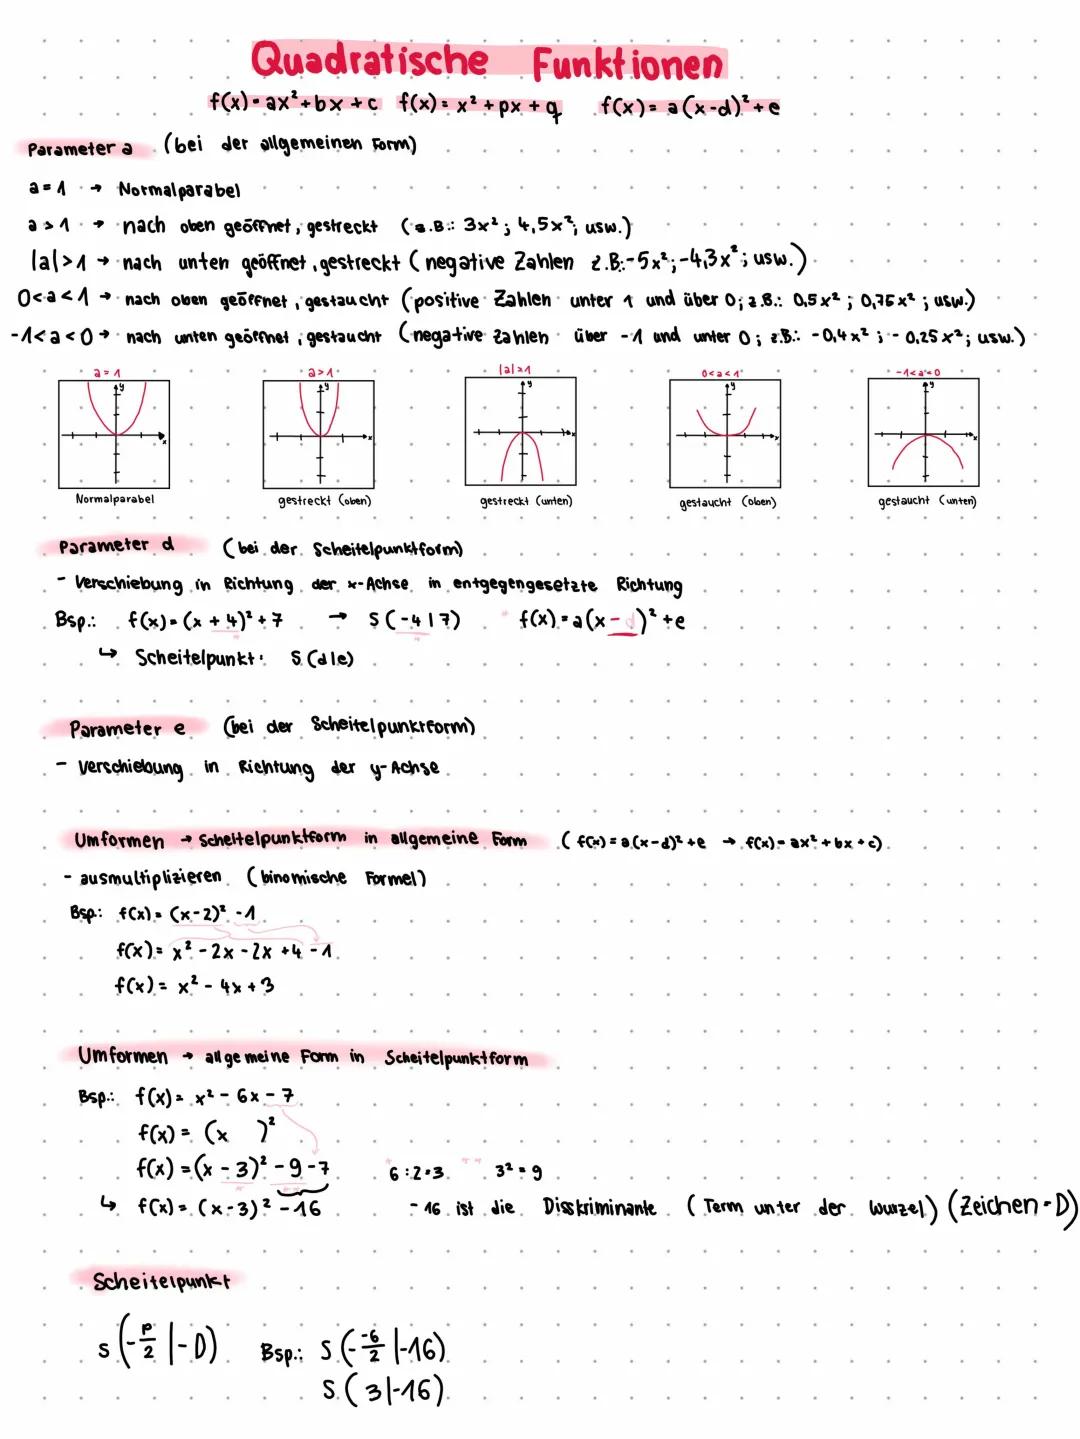 Quadratische Funktionen
f(x) = ax² + bx + c f(x) = x² + px + q f(x) = a(x-d)² + e
Parameter a (bei der allgemeinen Form)
a = 1 → Normalparabel
a > 1 → nach oben geöffnet, gestreckt (z.B.: 3x² ; 4,5x² ; usw.)
|a| > 1 → nach unten geöffnet, gestreckt (negative Zahlen z.B.: -5x² ; -4,3x² ; usw.)
0 < a < 1 → nach oben geöffnet, gestaucht (positive Zahlen unter 1 und über 0; z.B.: 0,5x² ; 0,75x² ; usw.)
-1 < a < 0 → nach unten geöffnet, gestaucht (negative Zahlen über -1 und unter 0; z.B.: -0,4x² ; -0,25x² ; usw.)
a = 1 a > 1 |a| > 1 0 < a < 1 -1 < a < 0
y y y y y
x x x x x
Normalparabel gestreckt (oben) gestreckt (unten) gestaucht (oben) gestaucht (unten)
Parameter d (bei der Scheitelpunktform)
- Verschiebung in Richtung der x-Achse in entgegengesetzte Richtung
Bsp.: f(x) = (x + 4)² + 7 → S(-4|7) * f(x) = a(x - d)² + e
↳ Scheitelpunkt: S(d|e)
Parameter e (bei der Scheitelpunktform)
- Verschiebung in Richtung der y-Achse
Umformen → Scheitelpunktform in allgemeine Form (f(x) = a(x-d)² + e → f(x) = ax² + bx + c)
- ausmultiplizieren (binomische Formel)
Bsp.: f(x) = (x-2)² - 1
f(x) = x² - 2x - 2x + 4 - 1
f(x) = x² - 4x + 3
Umformen → allgemeine Form in Scheitelpunktform
Bsp.: f(x) = x² - 6x - 7
f(x) = (x )²
f(x) = (x - 3)² - 9 - 7 * 6 : 2 = 3 ** 3² = 9
↳ f(x) = (x-3)² - 16 - 16 ist die Disskriminante (Term unter der Wurzel) (Zeichen = D)
Scheitelpunkt
S(-p/2 | -D) Bsp.: S(- -6/2 | -16)
S(3 | -16)